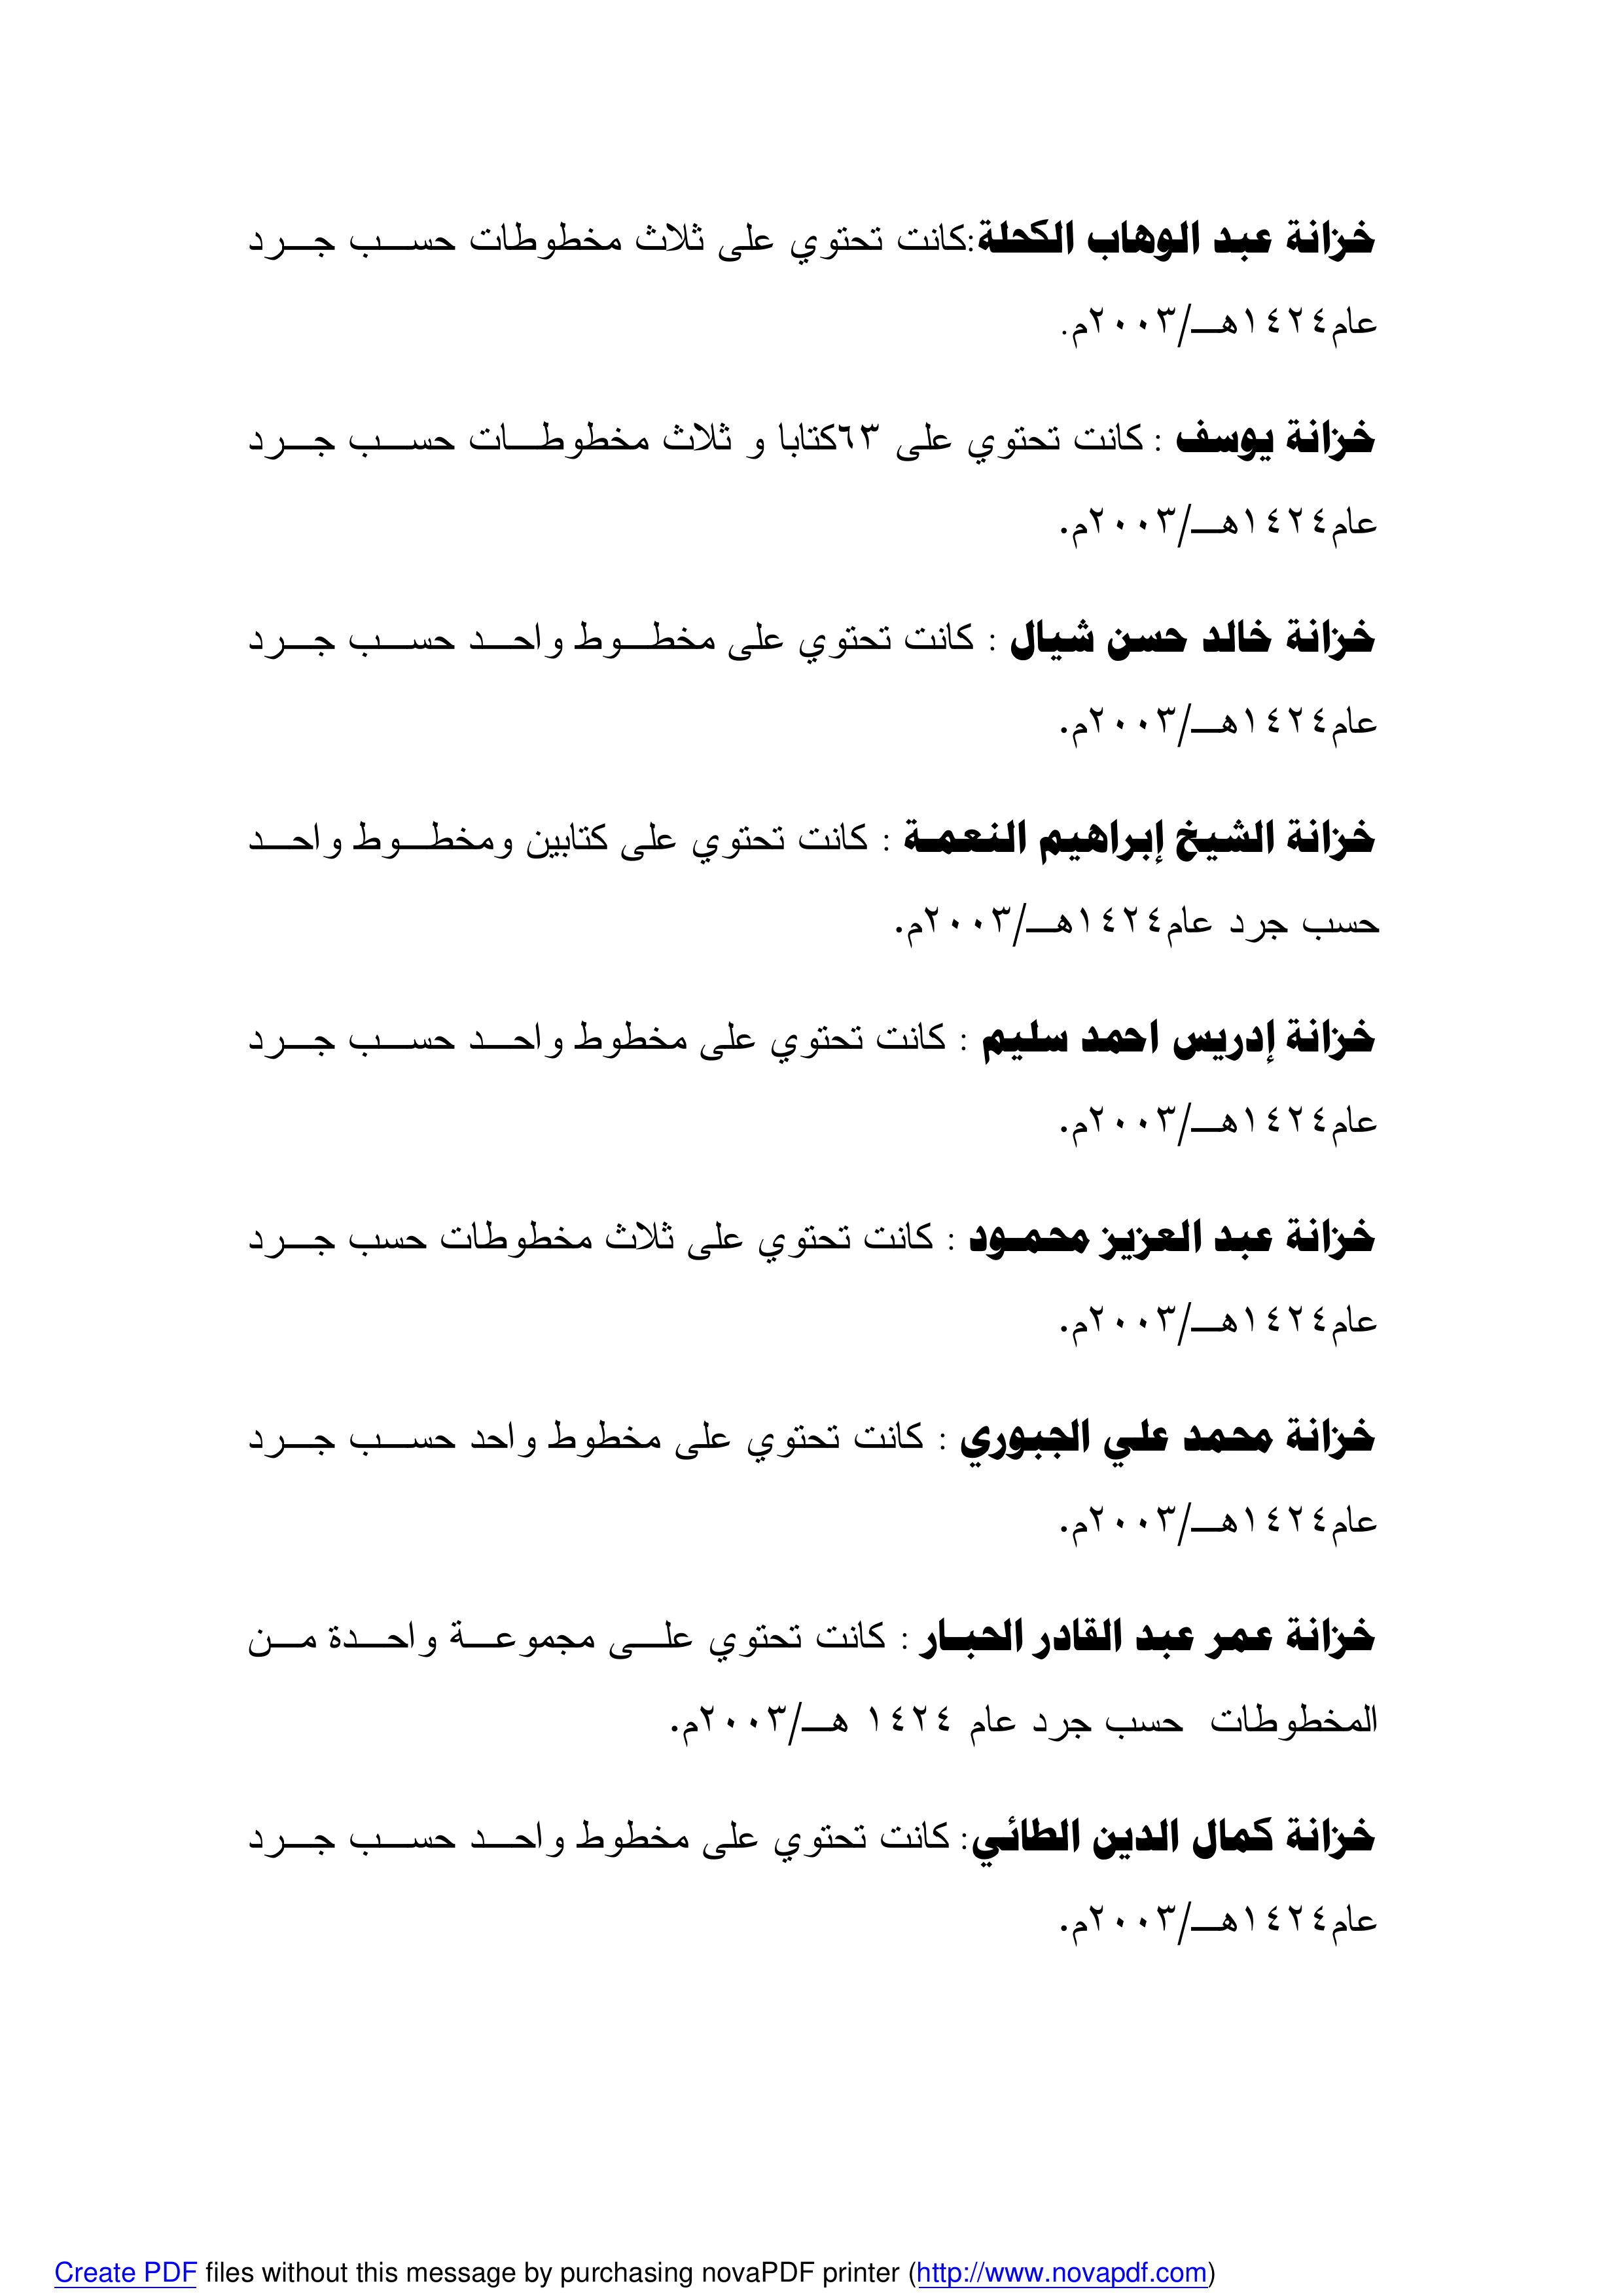 خزانة عبد الوهاب الكحلة:كانت تحتوي على ثلاث مخطوطات حسب جرد
عام١٤٢٤هـ/٢٠٠٣م.
خزانة يوسف : كانت تحتوي على ٦٣كتابا و ثلاث مخطوطات حسب جرد
عام١٤٢٤هـ/٢٠٠٣م.
خزانة خالد حسن شيال : كانت تحتوي على مخطوط واحد حسب جرد
عام١٤٢٤هـ/٢٠٠٣م.
خزانة الشيخ إبراهيم النعمة : كانت تحتوي على كتابين ومخطوط واحد
حسب جرد عام١٤٢٤هـ/٢٠٠٣م.
خزانة إدريس احمد سليم : كانت تحتوي على مخطوط واحد حسب جرد
عام١٤٢٤هـ/٢٠٠٣م.
خزانة عبد العزيز محمود : كانت تحتوي على ثلاث مخطوطات حسب جرد
عام١٤٢٤هـ/٢٠٠٣م.
خزانة محمد علي الجبوري : كانت تحتوي على مخطوط واحد حسب جرد
عام١٤٢٤هـ/٢٠٠٣م.
خزانة عمر عبد القادر الحبار : كانت تحتوي على مجموعة واحدة من
المخطوطات حسب جرد عام ١٤٢٤ هـ/٢٠٠٣م.
خزانة كمال الدين الطائي: كانت تحتوي على مخطوط واحد حسب جرد
عام١٤٢٤هـ/٢٠٠٣م.
Create PDF files without this message by purchasing novaPDF printer (http://www.novapdf.com)